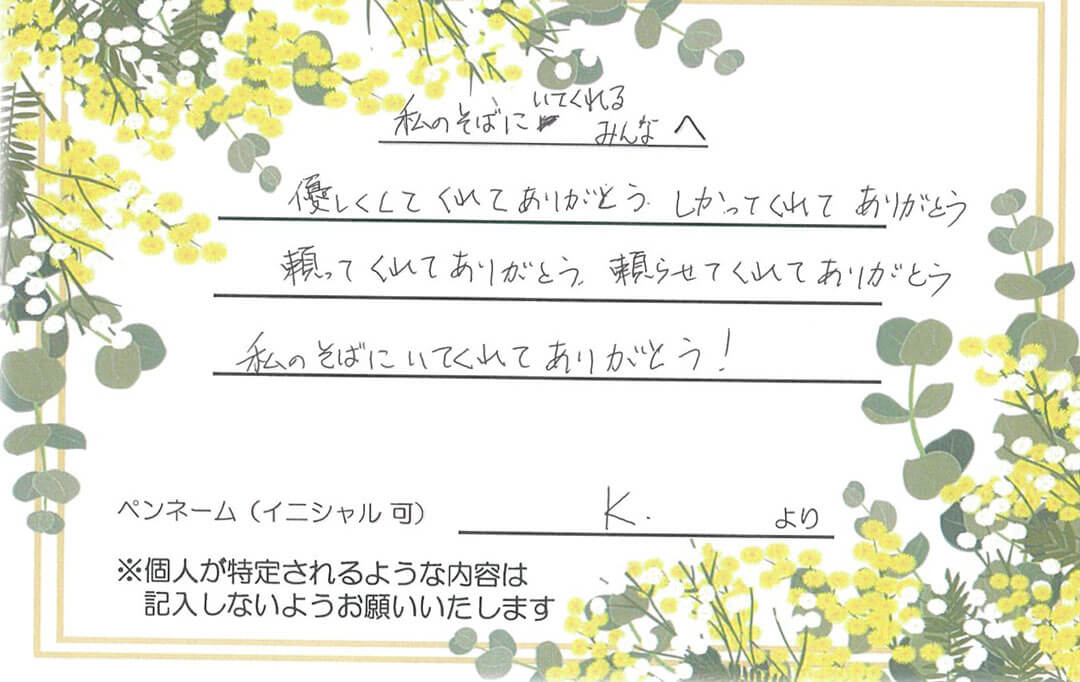 私のそばにいてくれるみんなへ
優しくしてくれてありがとう. しかってくれて ありがとう
頼ってくれてありがとう. 頼らせてくれてありがとう
私のそばにいてくれてありがとう!
ペンネーム（イニシャル 可） K. より
※個人が特定されるような内容は
記入しないようお願いいたします